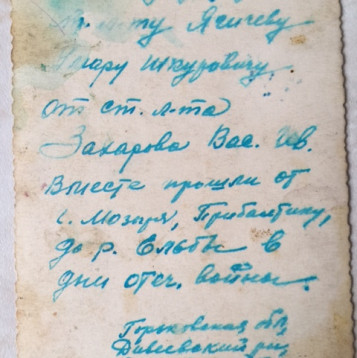 Мл. л-ту Ягичеву
Омару Шкуровичу.
От ст. л-та
Захарова Вас. Ив.
Вместе прошли от
г. Моздря, Прибалтику,
до р. Ельбы в
дни отеч. войны.
Горьковская обл,
Дивеевский рн,